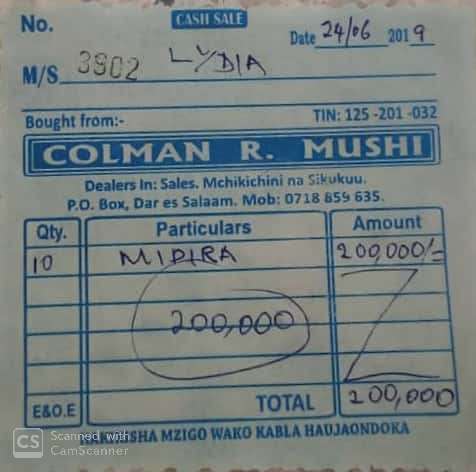 No. CASH SALE
Date 24/06 2019
M/S. 3902 LYDIA
Bought from:- TIN: 125 -201 -032
COLMAN R. MUSHI
Dealers In: Sales. Mchikichini na Sikukuu.
P.O. Box, Dar es Salaam. Mob: 0718 859 635.
Qty. Particulars Amount
10 MIPIRA 200,000/=
200,000
E&O.E TOTAL 200,000
MZIGO WAKO KABLA HAUJAONDOKA
CS Scanned with
CamScanner